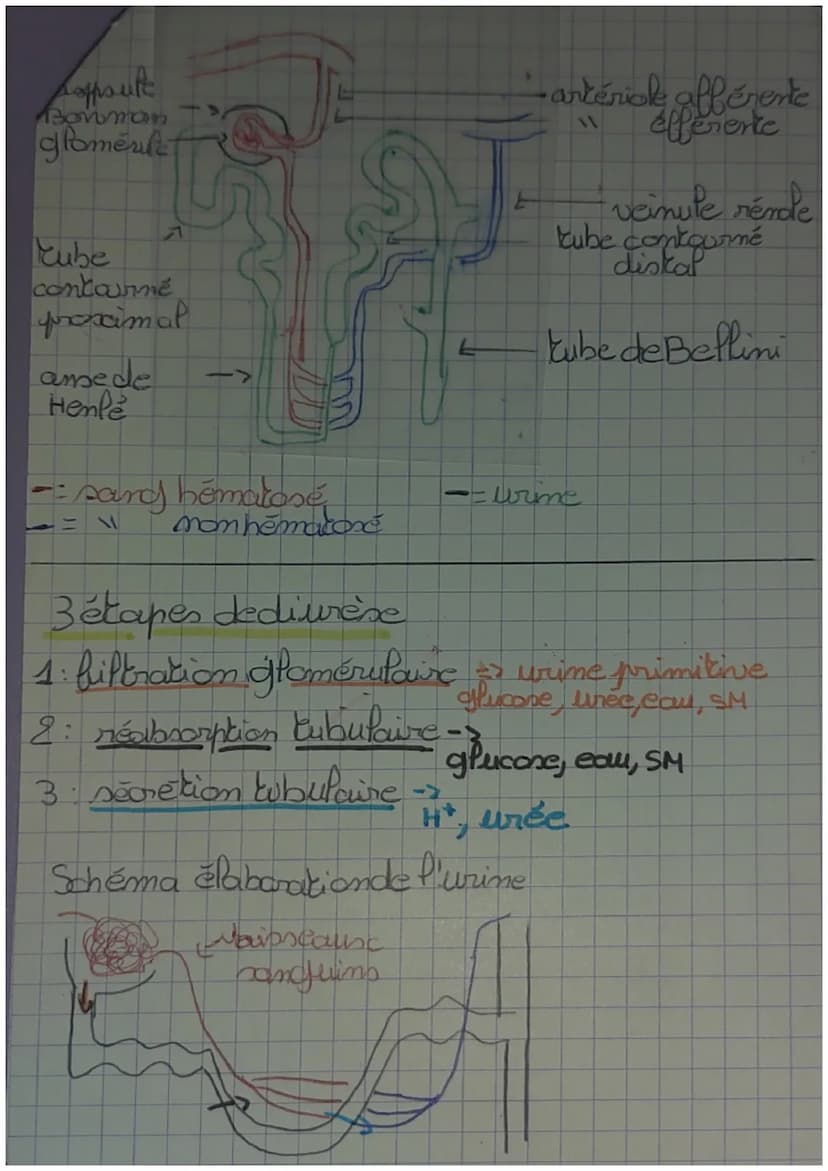 capsule
Bowman
glomérule
artériole afférente
" éfférente
veinule rénale
tube contourné
distal
tube
contourné
proximal
tube de Bellini
anse de
Henlé
-= sang hématosé
-= urine
-= " non hématosé
3 étapes de diurèse
1: filtration glomérulaire => urine primitive
glucose, urée, eau, SM
2: réabsorption tubulaire ->
glucose, eau, SM
3: sécrétion tubulaire ->
H+, urée
Schéma élaboration de l'urine
Vaisseaux
sanguins